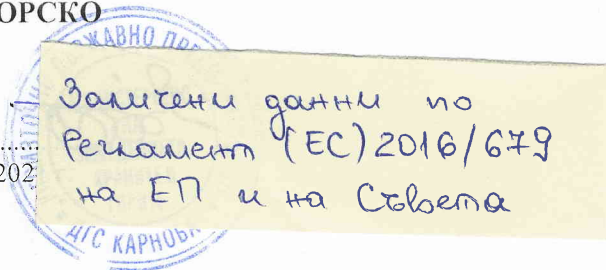 ОРСКО
Заличени данни по
Регламент (ЕС) 2016/679
на ЕП и на Съвета
202
ДГС КАРНОБ